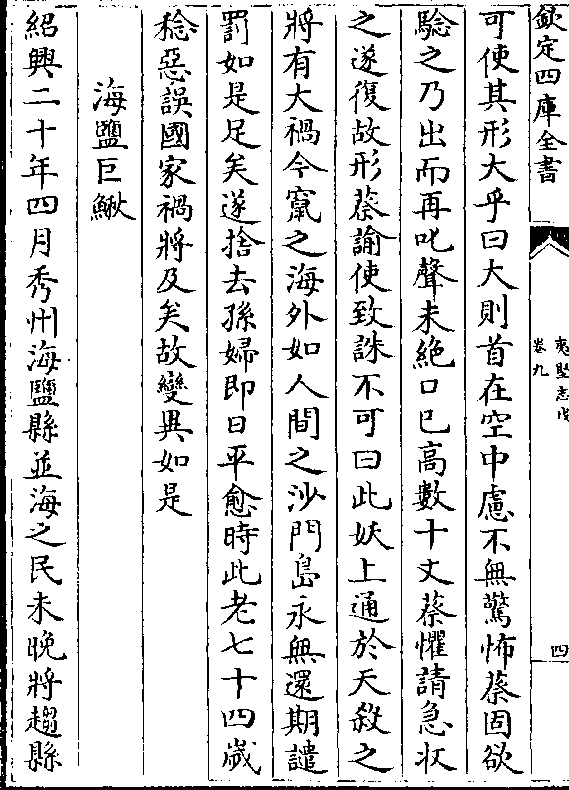 欽定四庫全書
夷堅志戊
卷九
四
可使其形大乎曰大則首在空中慮不無驚怖蔡固欲
驗之乃出而再叱聲未絶口已高數十丈蔡懼請急收
之遂復故形蔡諭使致誅不可曰此妖上通於天殺之
將有大禍今竄之海外如人間之沙門島永無還期譴
罰如是足矣遂捨去孫婦即日平愈時此老七十四歲
稔惡誤國家禍將及矣故變異如是
海鹽巨鰍
紹興二十年四月秀州海鹽縣並海之民未晩將趨縣